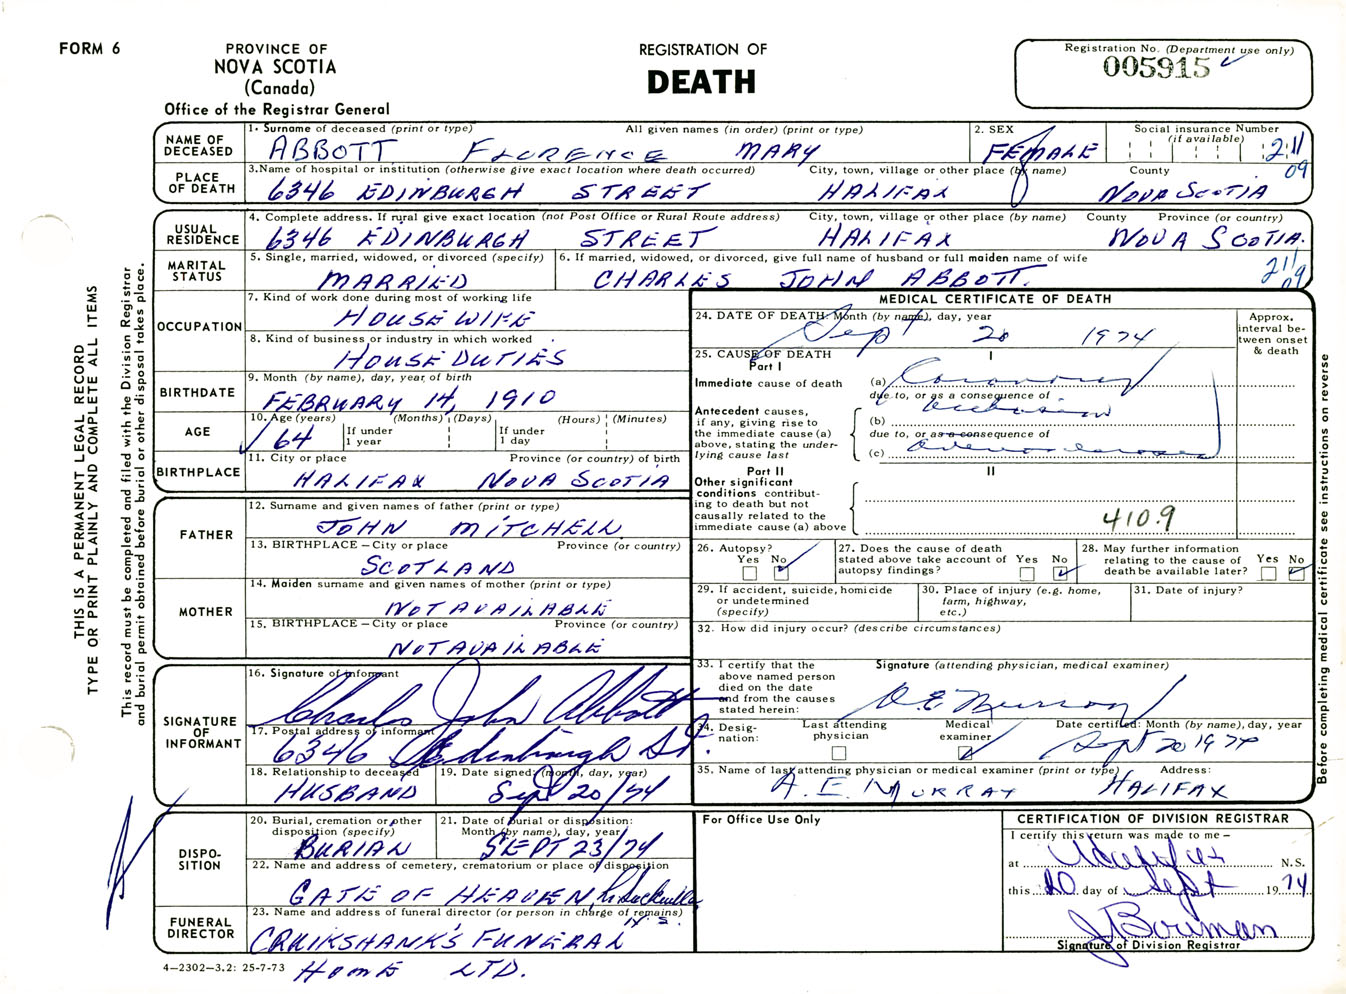 FORM 6
PROVINCE OF
NOVA SCOTIA
(Canada)
Office of the Registrar General
REGISTRATION OF
DEATH
Registration No. (Department use only)
005915
THIS IS A PERMANENT LEGAL RECORD
TYPE OR PRINT PLAINLY AND COMPLETE ALL ITEMS
This record must be completed and filed with the Division Registrar
and burial permit obtained before burial or other disposal takes place.
NAME OF
DECEASED
1. Surname of deceased (print or type) All given names (in order) (print or type)
ABBOTT FLORENCE MARY
2. SEX
FEMALE
Social insurance Number
(if available)
211
09
PLACE
OF DEATH
3. Name of hospital or institution (otherwise give exact location where death occurred) City, town, village or other place (by name) County
6346 EDINBURGH STREET HALIFAX NOVA SCOTIA
USUAL
RESIDENCE
4. Complete address. If rural give exact location (not Post Office or Rural Route address) City, town, village or other place (by name) County Province (or country)
6346 EDINBURGH STREET HALIFAX NOVA SCOTIA.
MARITAL
STATUS
5. Single, married, widowed, or divorced (specify)
MARRIED
6. If married, widowed, or divorced, give full name of husband or full maiden name of wife
CHARLES JOHN ABBOTT.
211
09
OCCUPATION
7. Kind of work done during most of working life
HOUSE WIFE
8. Kind of business or industry in which worked
HOUSE DUTIES
BIRTHDATE
9. Month (by name), day, year of birth
FEBRUARY 14, 1910
AGE
10. Age (years) (Months) (Days) (Hours) (Minutes)
64 If under
1 year
If under
1 day
BIRTHPLACE
11. City or place Province (or country) of birth
HALIFAX NOVA SCOTIA
FATHER
12. Surname and given names of father (print or type)
JOHN MITCHELL
13. BIRTHPLACE – City or place Province (or country)
SCOTLAND
MOTHER
14. Maiden surname and given names of mother (print or type)
NOT AVAILABLE
15. BIRTHPLACE – City or place Province (or country)
NOT AVAILABLE
SIGNATURE
OF
INFORMANT
16. Signature of informant
Charles John Abbott
17. Postal address of informant
6346 Edinburgh St.
18. Relationship to deceased
HUSBAND
19. Date signed: (month, day, year)
Sept 20/74
DISPO-
SITION
20. Burial, cremation or other
disposition (specify)
BURIAL
21. Date of burial or disposition:
Month (by name), day, year
SEPT 23/74
22. Name and address of cemetery, crematorium or place of disposition
GATE OF HEAVEN, L. Sackville
N.S.
FUNERAL
DIRECTOR
23. Name and address of funeral director (or person in charge of remains)
CRUIKSHANK'S FUNERAL
HOME LTD.
4–2302–3.2: 25-7-73
MEDICAL CERTIFICATE OF DEATH
24. DATE OF DEATH: Month (by name), day, year
Sept 20 1974
Approx.
interval be-
tween onset
& death
25. CAUSE OF DEATH
Part I
I
Immediate cause of death
(a) Coronary
due to, or as a consequence of
occlusion
Antecedent causes,
if any, giving rise to
the immediate cause (a)
above, stating the under-
lying cause last
(b)
due to, or as a consequence of
(c)
Part II
II
Other significant
conditions contribut-
ing to death but not
causally related to the
immediate cause (a) above
410.9
26. Autopsy?
Yes No
27. Does the cause of death
stated above take account of
autopsy findings?
Yes No
28. May further information
relating to the cause of
death be available later?
Yes No
29. If accident, suicide, homicide
or undetermined
(specify)
30. Place of injury (e.g. home,
farm, highway,
etc.)
31. Date of injury?
32. How did injury occur? (describe circumstances)
33. I certify that the
above named person
died on the date
and from the causes
stated herein:
Signature (attending physician, medical examiner)
A.E. Murray
34. Desig-
nation:
Last attending
physician
Medical
examiner
Date certified: Month (by name), day, year
Sept 20 1974
35. Name of last attending physician or medical examiner (print or type) Address:
A. E. MURRAY HALIFAX
For Office Use Only
CERTIFICATION OF DIVISION REGISTRAR
I certify this return was made to me –
at Halifax N.S.
this 20 day of Sept 1974
J Bowman
Signature of Division Registrar
Before completing medical certificate see instructions on reverse